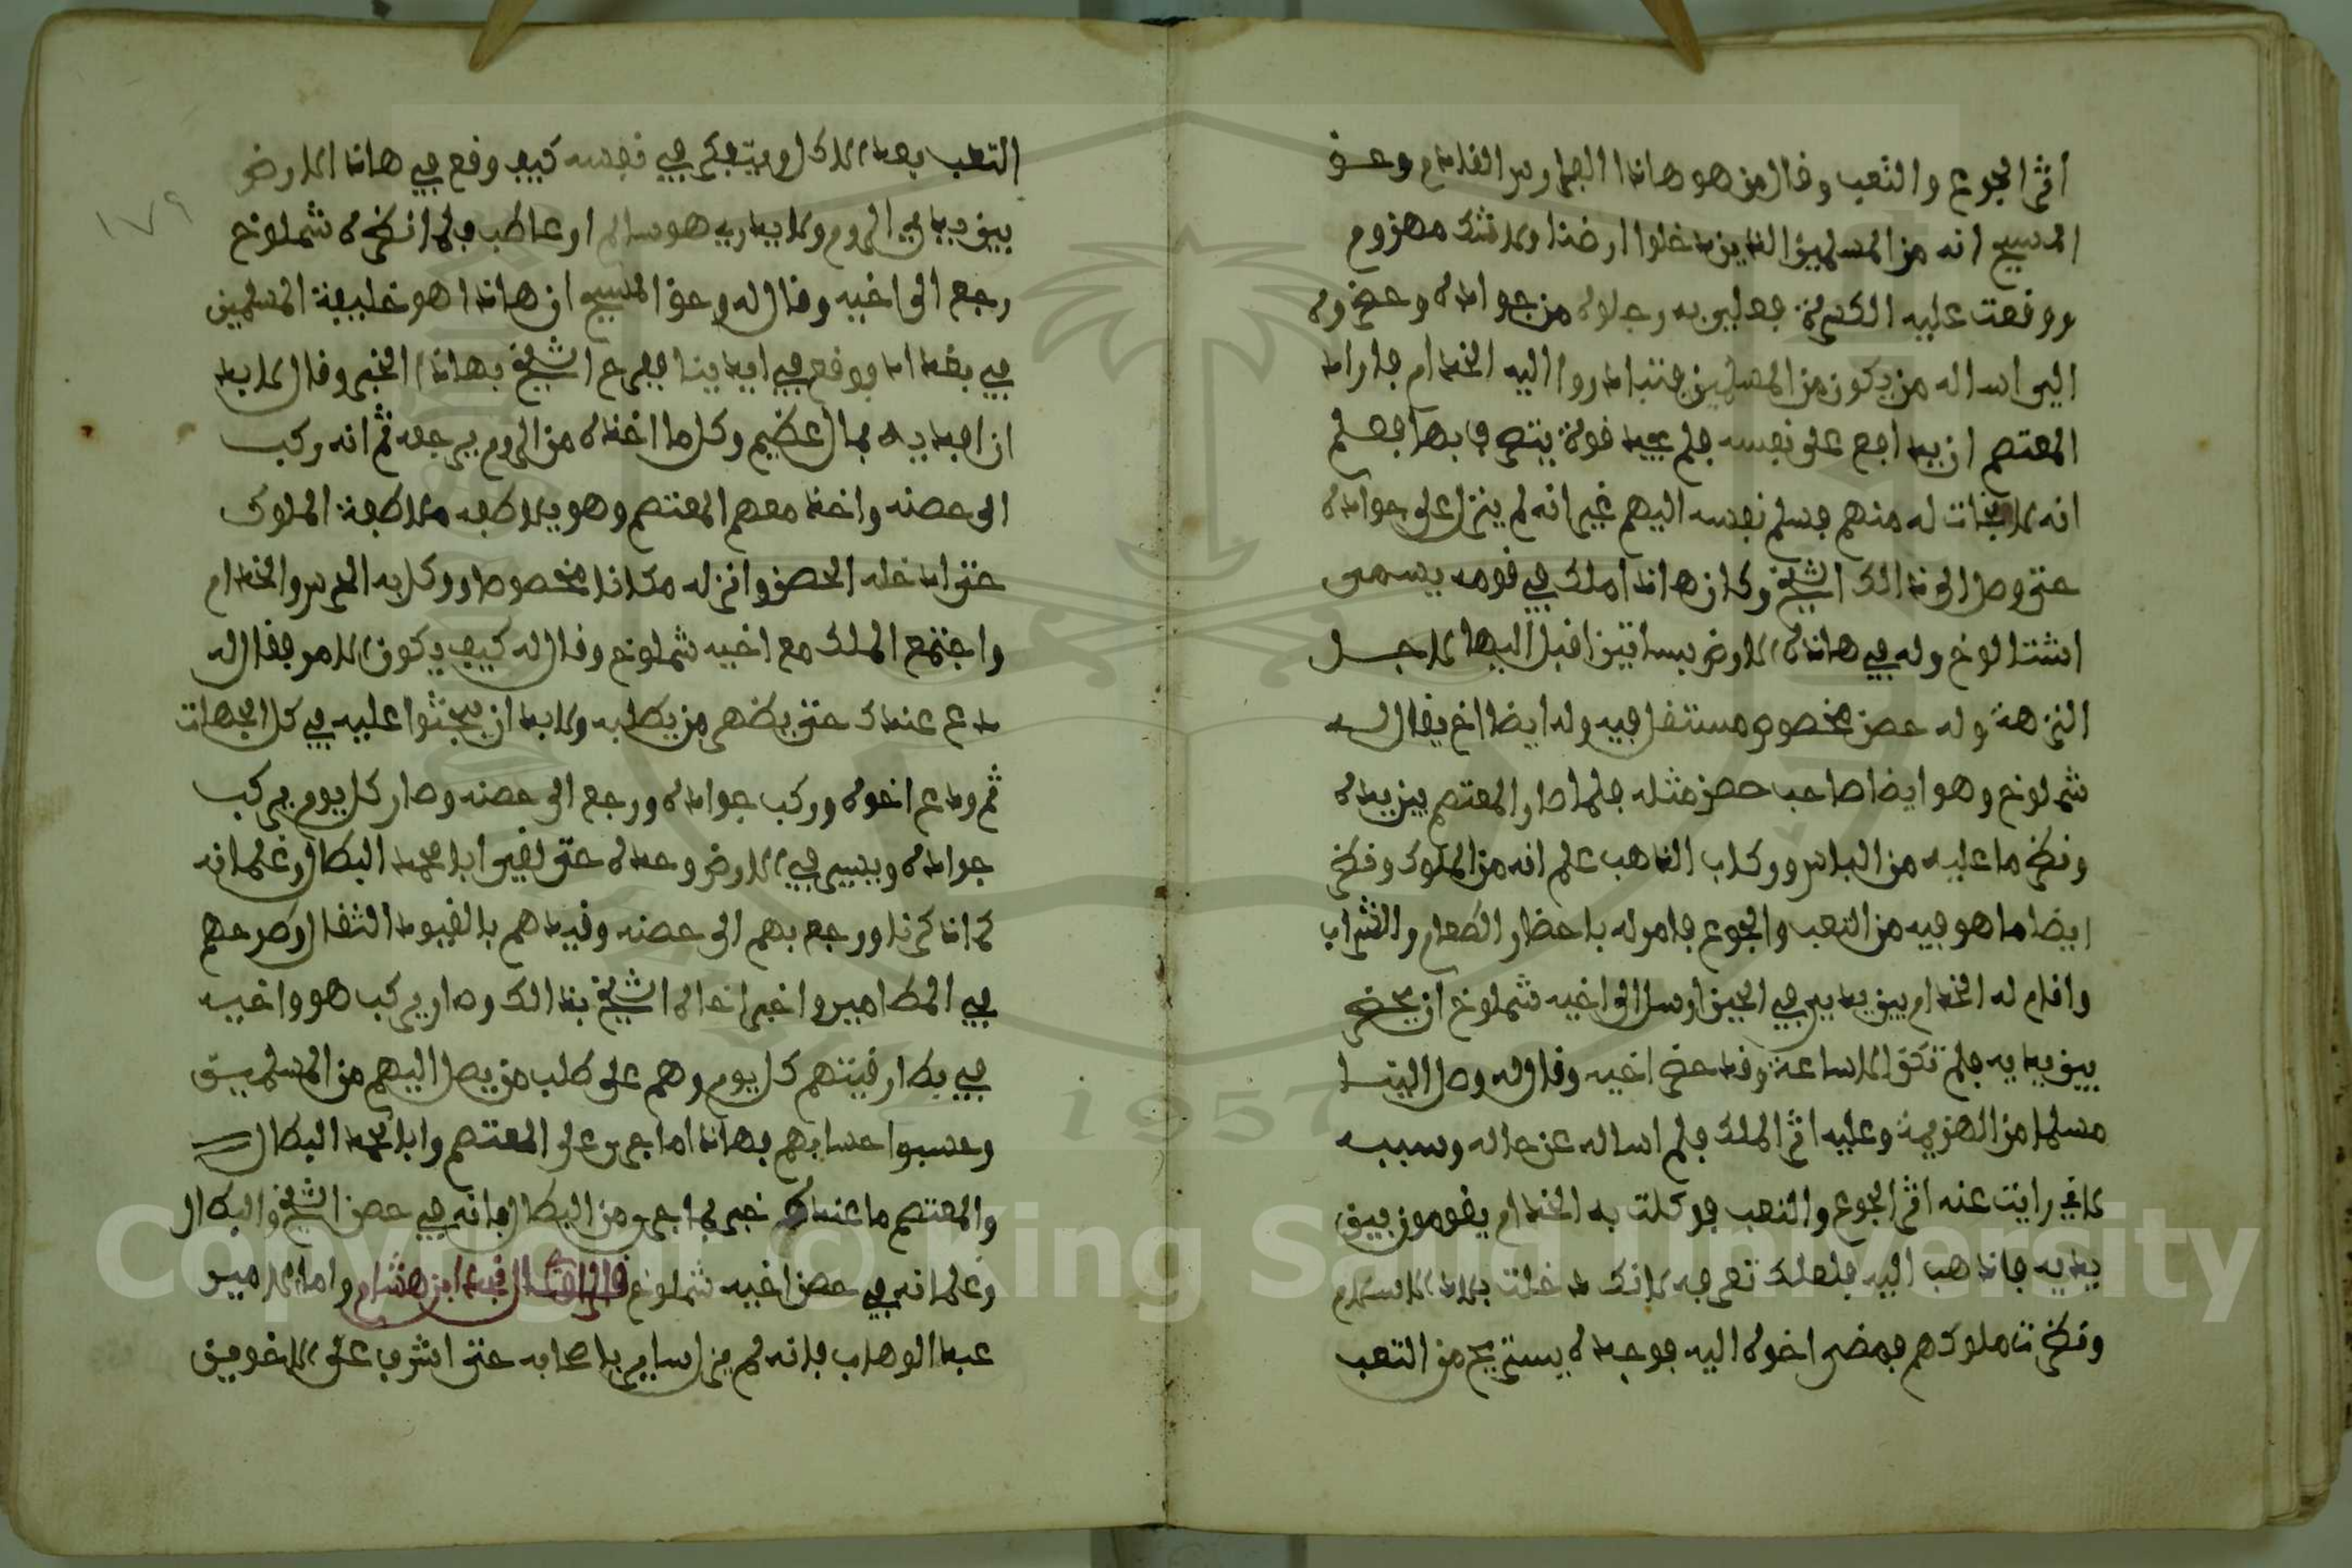 اثر الجوع والتعب وقال من هو هاذا الفارس القادم وحق
المسيح انه من المسلمين الذين دخلوا ارضنا ولا شك مهزوم
ووقعت عليه الكسرة فعليّ به رجلوه من جواده وحضروه
الي اساله من يكون من المسلمين فتبادروا اليه الخدام فاراد
المعتصم ان يدافع على نفسه فلم يجد قوة يتصرف بها فعلم
انه لا نجات له منهم فسلم نفسه اليهم غير انه لم ينزل على جواده
حتى وصل الى ذالك الشيخ وكان هاذا ملك في قومه يسمى
اشتالوخ وله في هاذه الارض بساتين اقبل اليها لاجل
النزهة وله حصن مخصوص مستقل فيه وله ايضا اخ يقال له
شملوخ وهو ايضا صاحب حصن مثله فلما صار المعتصم بين يديه
ونظر ما عليه من الباس وركاب الذهب علم انه من الملوك ونظر
ايضا ما هو فيه من التعب والجوع فامر له باحظار الطعام والشراب
واقام له الخدام بين يديه وفي الحين ارسل الى اخيه شملوخ ان يحضر
بين يديه فلم تكن الا ساعة وقد حضر اخيه وقال له وصل الينا
مسلما من الهزيمة وعليه اثر الملك فلم اساله عن حاله وسببه
لاني رايت عنه اثر الجوع والتعب فوكلت به الخدام يقومون بين
يديه فاذهب اليه فلعلك تعرفه لانك دخلت بلاد الاسلام
ونظرت ملوكهم فمضى اخوه اليه فوجده يستريح من التعب
التعب بعد الاكل ويتفكر في نفسه كيف وقع في هاذا الارض
بين ديار الروم ولا يدري هو سالم او عاطب فلما نظره شملوخ
رجع الى اخيه وقال له وحق المسيح ان هاذا هو خليفة المسلمين
في بغداد ووقع في ايدينا ففرح الشيخ بهاذا الخبر وقال لا بد
ان افديه بمال عظيم وكل ما اخذه من الروم يرجعه ثم انه ركب
الى حصنه واخذ معهم المعتصم وهو يلاطفه ملاطفة الملوك
حتى ادخله الحصن وانزله مكانا مخصوصا ووكل به الحرس والخدام
واجتمع الملك مع اخيه شملوخ وقال له كيف يكون الامر فقال له
دع عندك حتى يظهر من يطلبه ولا بد ان يبحثوا عليه في كل الجهات
ثم ودع اخوه وركب جواده ورجع الى حصنه وصار كل يوم يركب
جواده ويسير في الارض وحده حتى لقي ابا محمد البطال وغلمانه
كما ذكرنا ورجع بهم الى حصنه وقيدهم بالقيود الثقال وطرحهم
في المطامير واخبر اخاه الشيخ بذالك وصار يركب هو واخيه
في بطارقتهم كل يوم وهم على طلب من يصل اليهم من المسلمين
وحسبوا حسابهم بهاذا ما جرى على المعتصم وابا محمد البطال
والمعتصم ما عنده خبر بما جرى من البطال فانه في حصن الشيخ والبطال
وغلمانه في حصن اخيه شملوخ قال نجد ابن هشام واما الامير
عبد الوهاب فانه لم يزل ساير باصحابه حتى اشرف على الاخوين